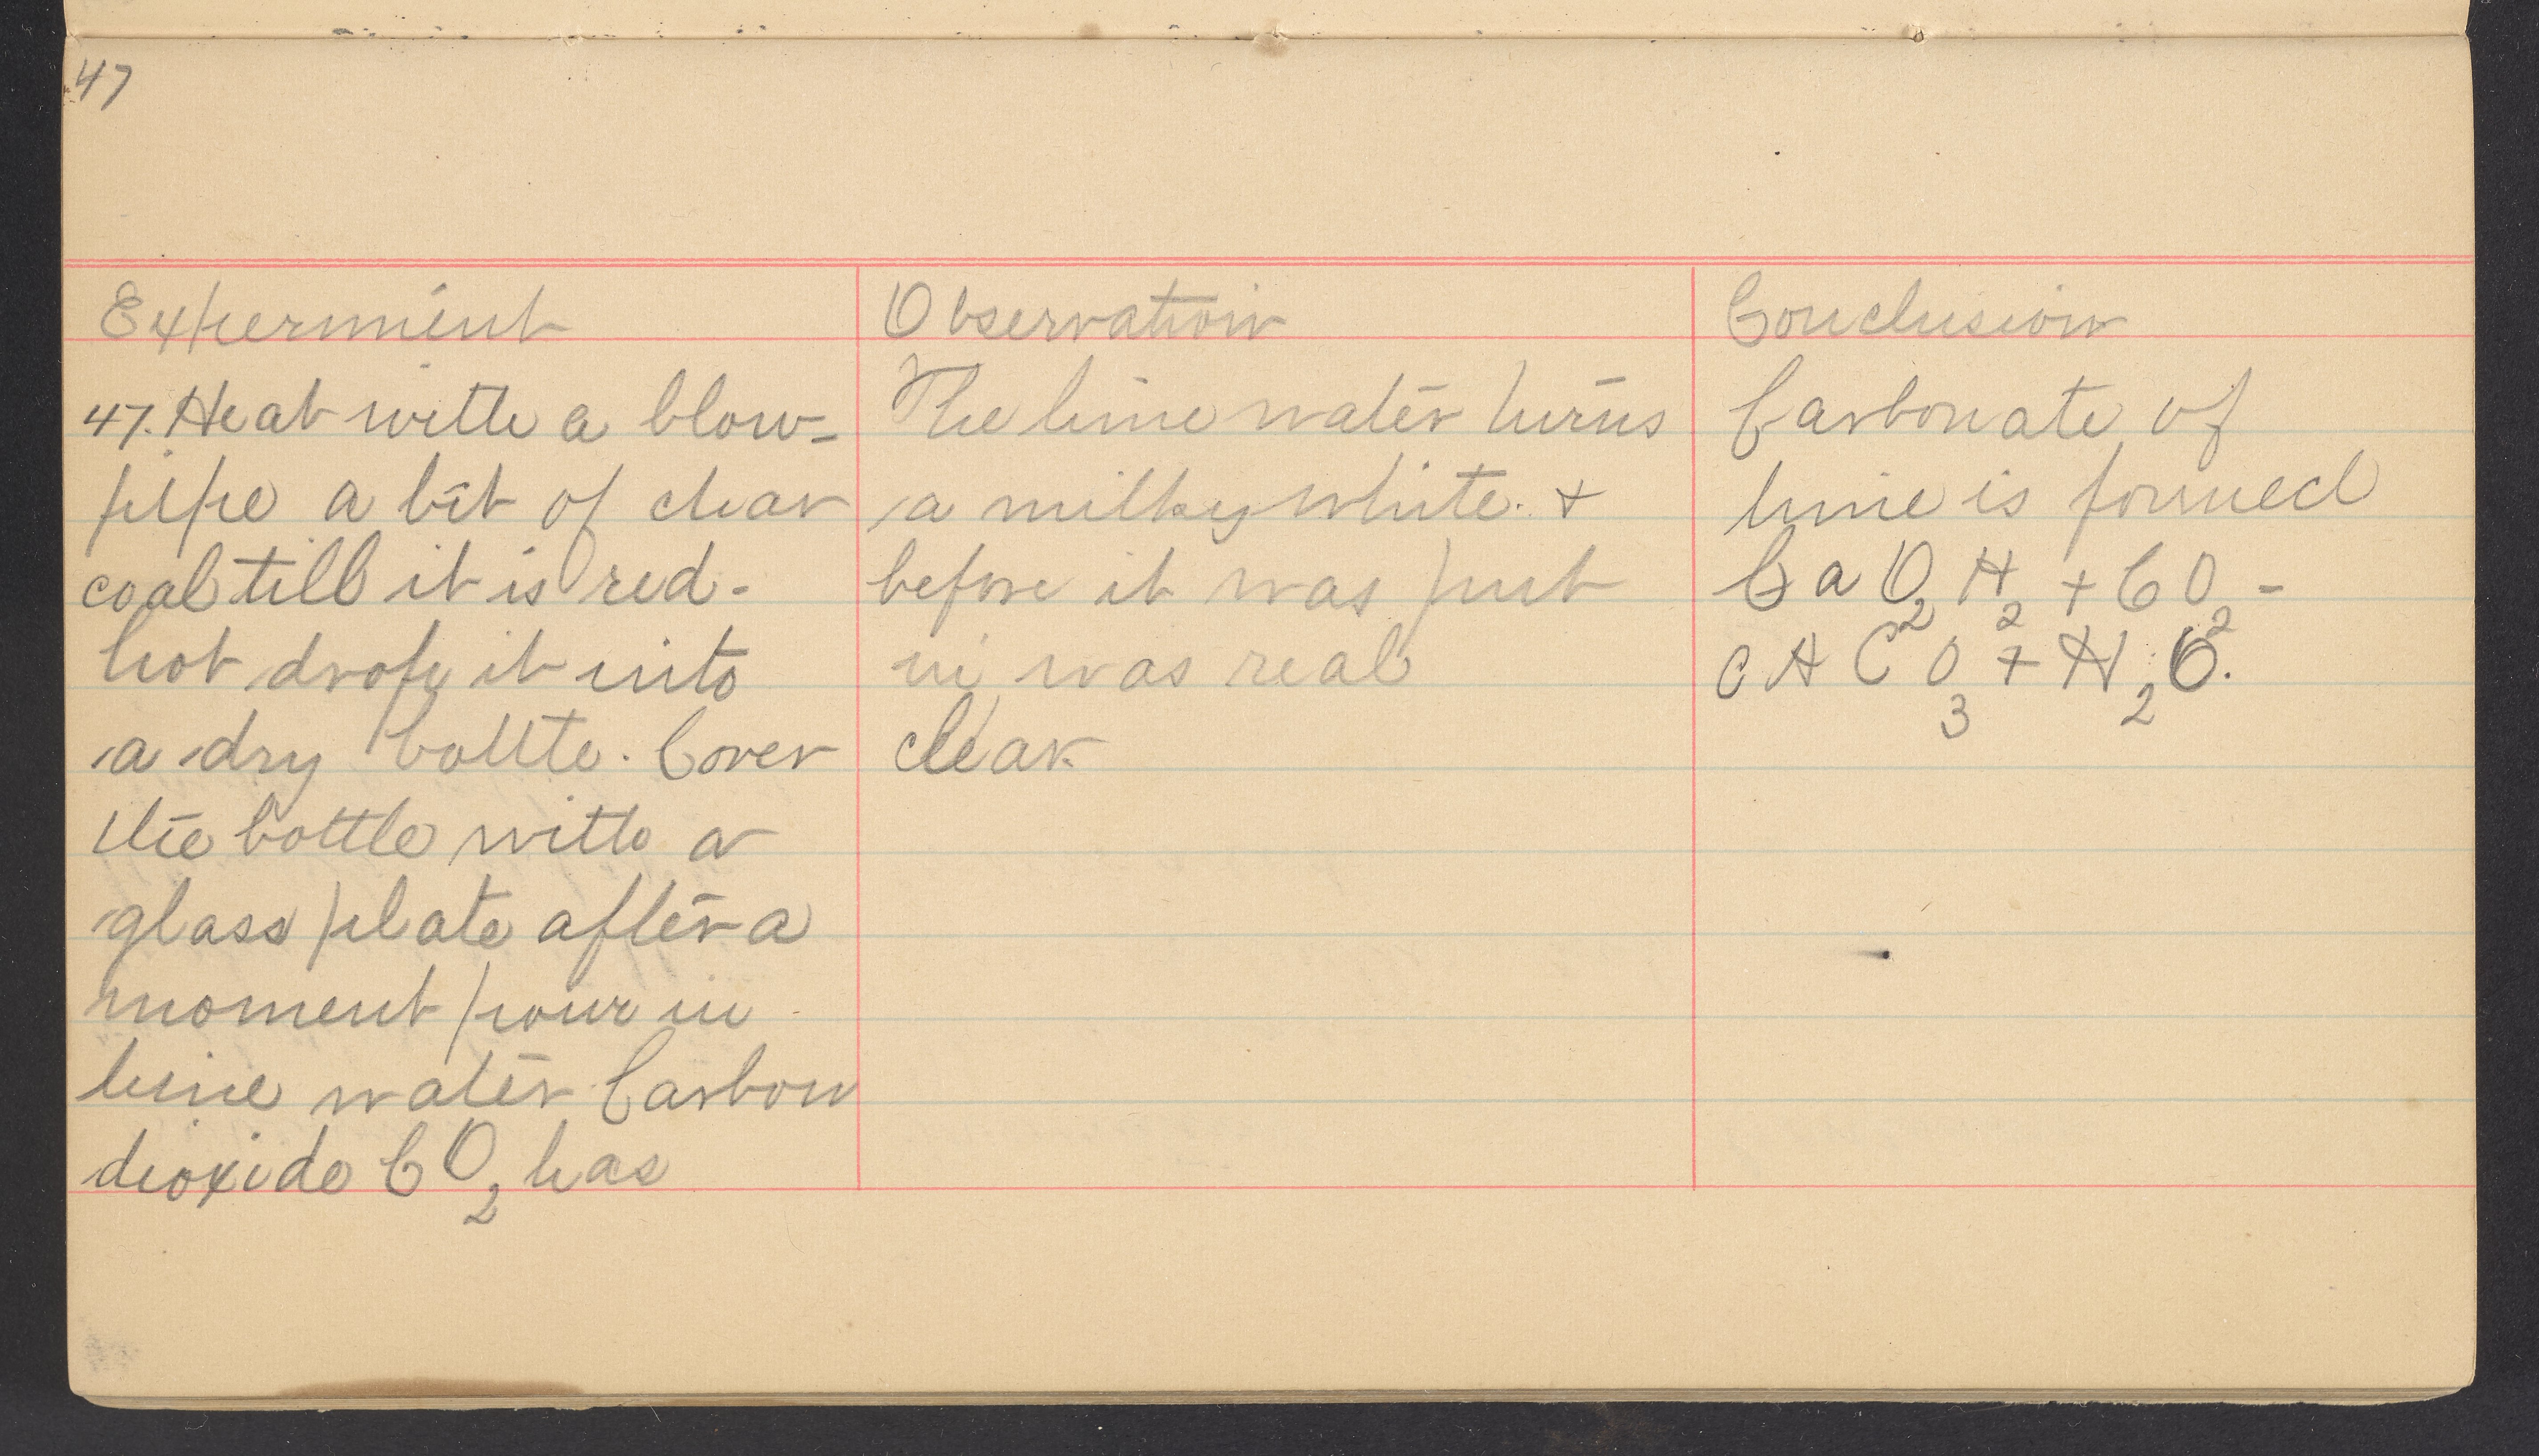 47
Experiment
47. Heat with a blow-
pipe a bit of char
coal till it is red-
hot drop it into
a dry bottle. Cover
the bottle with a
glass plate after a
moment pour in
lime water Carbon
dioxide CO2 has
Observation
The lime water turns
a milky white. +
before it was put
in was real
clear
Conclusion
Carbonate of
lime is formed
CaO2H2 + CO2 -
CACO3 + H2O.